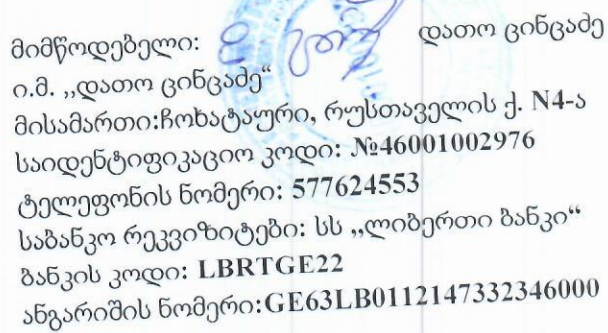 მიმწოდებელი: დათო ცინცაძე
ი.მ. ,,დათო ცინცაძე“
მისამართი:ჩოხატაური, რუსთაველის ქ. N4-ა
საიდენტიფიკაციო კოდი: №46001002976
ტელეფონის ნომერი: 577624553
საბანკო რეკვიზიტები: სს ,,ლიბერთი ბანკი“
ბანკის კოდი: LBRTGE22
ანგარიშის ნომერი:GE63LB0112147332346000